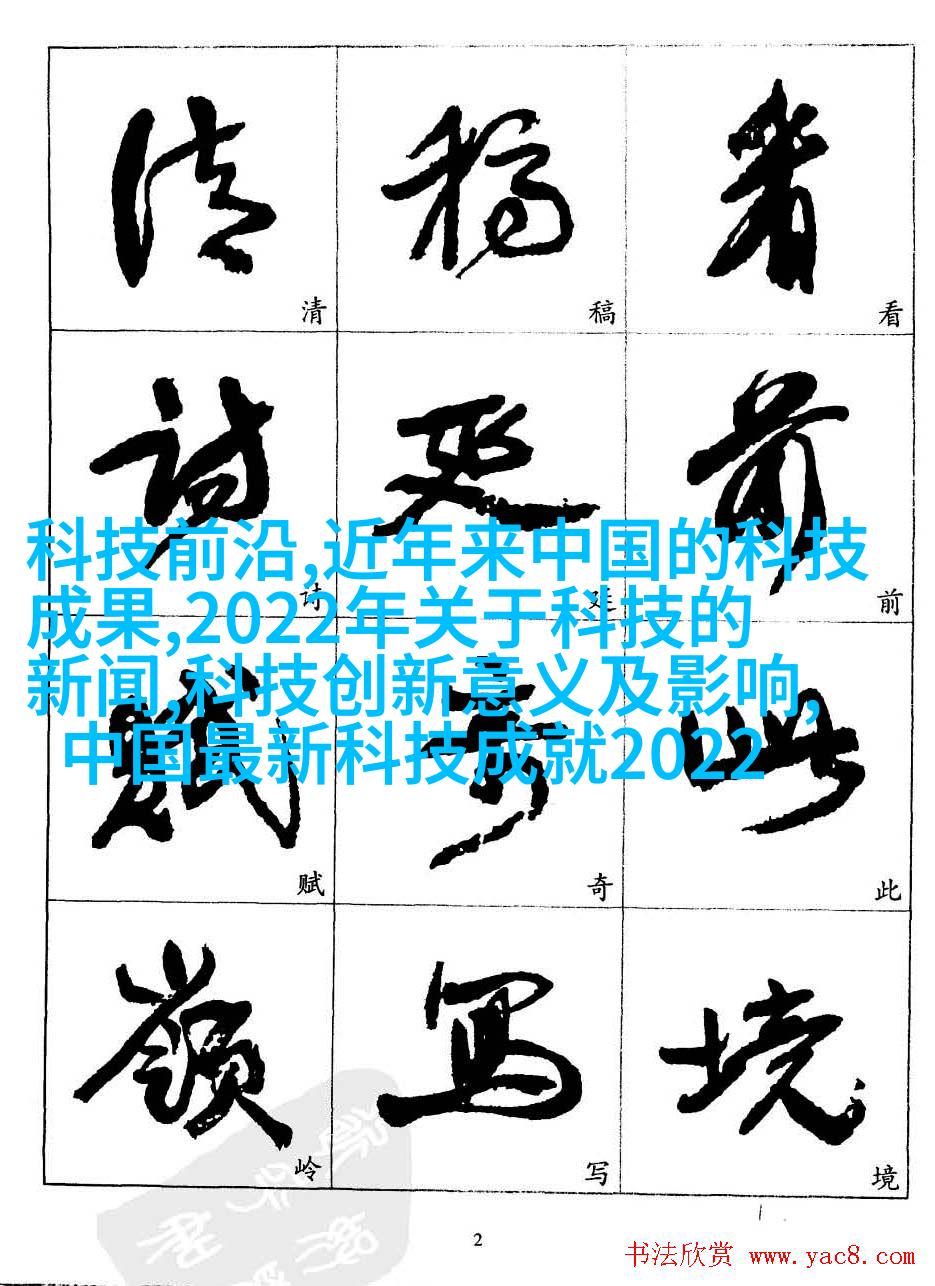 清 稿 看
清 稿 看
詩 廷 前
科技前沿,近年来中国的科技
诗 廷 前
成果,2022年关于科技的
新闻,科技创新意义及影响,
賦 奇 此
中国最新科技成就2022
赋 奇 此
嶺 寫 境
岭 写 境
2
书法欣赏 www.yac8.com